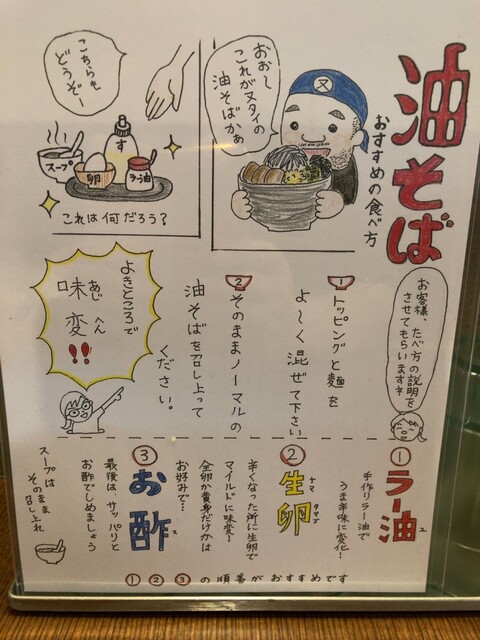 油そば
おすすめの食べ方
おお〜
これがヌタイの
油そばかぁ
又
こちらも
どうぞー
スープ
卵
す
ラー油
これは何だろう?
お客様、たべ方の説明を
させてもらいますネ
1
トッピングと麺を
よ〜く混ぜて下さい
2
そのままノーマルの
油そばを召し上って
ください。
よきところで
味変!!
あじへん
①ラー油
ユ
手作りラー油で
うま辛味に変化!
②生卵
ナマタマゴ
辛くなった所に生卵で
マイルドに味変!
全卵か黄身だけかは
お好みで…
③お酢
ス
最後は、サッパリと
お酢でしめましょう
スープは
そのまま
召し上れ
①②③の順番がおすすめです